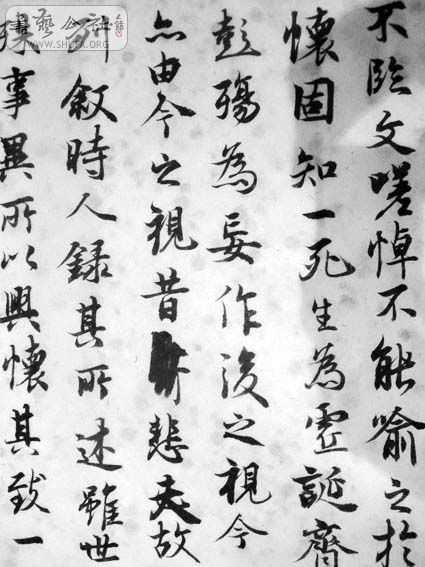 不臨文嗟悼不能喻之於
懷固知一死生為虛誕齊
彭殤為妄作後之視今
亦由今之視昔悲夫故
列敘時人錄其所述雖世
殊事異所以興懷其致一
書藝公社
www.SHUFA.ORG